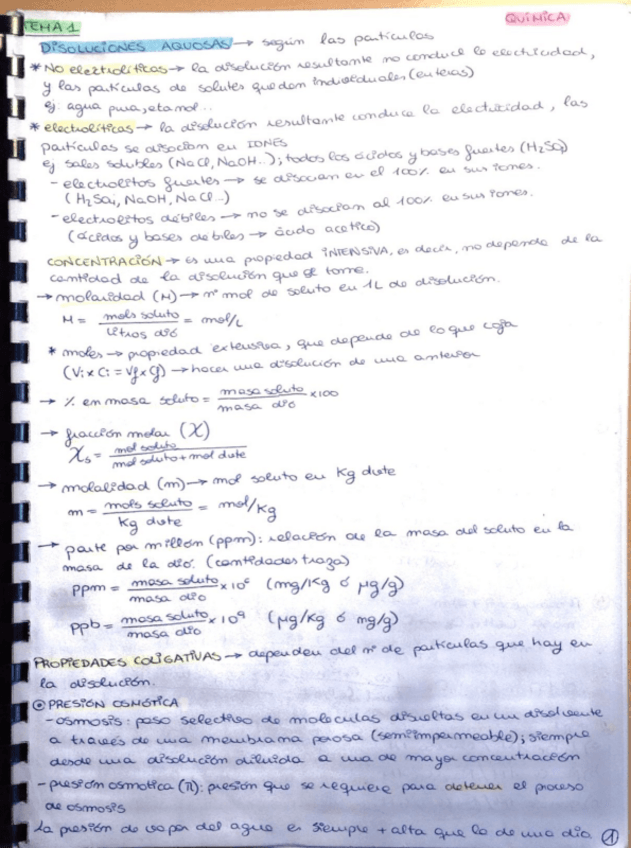 TEMA 1
QUÍMICA
DISOLUCIONES ACUOSAS → según las partículas
* NO electrolíticas → la disolución resultante no conduce la electricidad,
y las partículas de solutos quedan individuales (enteras)
ej: agua pura, etanol...
* electrolíticas → la disolución resultante conduce la electricidad, las
partículas se disocian en IONES
ej sales solubles (NaCl, NaOH..); todos los ácidos y bases fuertes (H₂SO₄)
- electrolitos fuertes → se disocian en el 100% en sus iones.
(H₂SO₄, NaOH, NaCl...)
- electrolitos débiles → no se disocian al 100% en sus iones.
(ácidos y bases débiles → ácido acético)
CONCENTRACIÓN → es una propiedad INTENSIVA, es decir, no depende de la
cantidad de la disolución que se tome.
→ molaridad (M) → nº mol de soluto en 1L de disolución.
M = mols soluto / litros dió = mol/L
* moles → propiedad extensiva, que depende de lo que coja
(Vi x Ci = Vf x Cf) → hacer una disolución de una anterior
→ % en masa soluto = masa soluto / masa dió x100
→ fracción molar (X)
Xs = mol soluto / mol soluto + mol dvte
→ molalidad (m) → mol soluto en Kg dvte
m = mols soluto / Kg dvte = mol/Kg
→ parte por millón (ppm): relación de la masa del soluto en la
masa de la dió. (cantidades traza)
ppm = masa soluto / masa dió x 10⁶ (mg/Kg ó μg/g)
ppb = masa soluto / masa dió x 10⁹ (μg/Kg ó mg/g)
PROPIEDADES COLIGATIVAS → dependen del nº de partículas que hay en
la disolución.
⊙ PRESIÓN OSMÓTICA
- osmosis: paso selectivo de moléculas disueltas en un disolvente
a través de una membrana porosa (semiimpermeable); siempre
desde una disolución diluida a una de mayor concentración
- presión osmótica (π): presión que se requiere para detener el proceso
de osmosis
La presión de vapor del agua es siempre + alta que la de una dió. 1